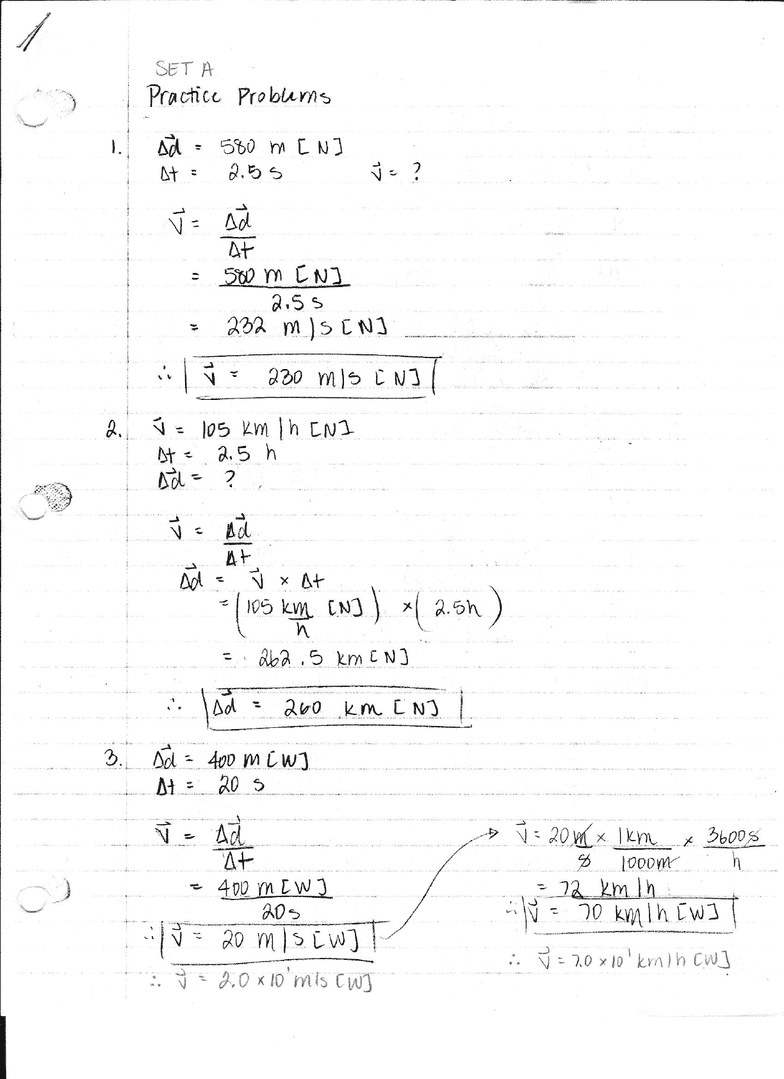 1
SET A
Practice Problems
1. Δd⃗ = 580 m [N]
Δt = 2.5 s v⃗ = ?
v⃗ = Δd⃗
Δt
= 580 m [N]
2.5 s
= 232 m/s [N]
∴ v⃗ = 230 m/s [N]
2. v⃗ = 105 km/h [N]
Δt = 2.5 h
Δd⃗ = ?
v⃗ = Δd⃗
Δt
Δd⃗ = v⃗ × Δt
= (105 km [N]) × (2.5h)
h
= 262.5 km [N]
∴ Δd⃗ = 260 km [N]
3. Δd⃗ = 400 m [W]
Δt = 20 s
v⃗ = Δd⃗
Δt
= 400 m [W]
20s
∴ v⃗ = 20 m/s [W]
∴ v⃗ = 2.0 × 10¹ m/s [W]
→ v⃗ = 20 m × 1km × 3600s
s 1000m h
= 72 km/h
∴ v⃗ = 70 km/h [W]
∴ v⃗ = 7.0 × 10¹ km/h [W]